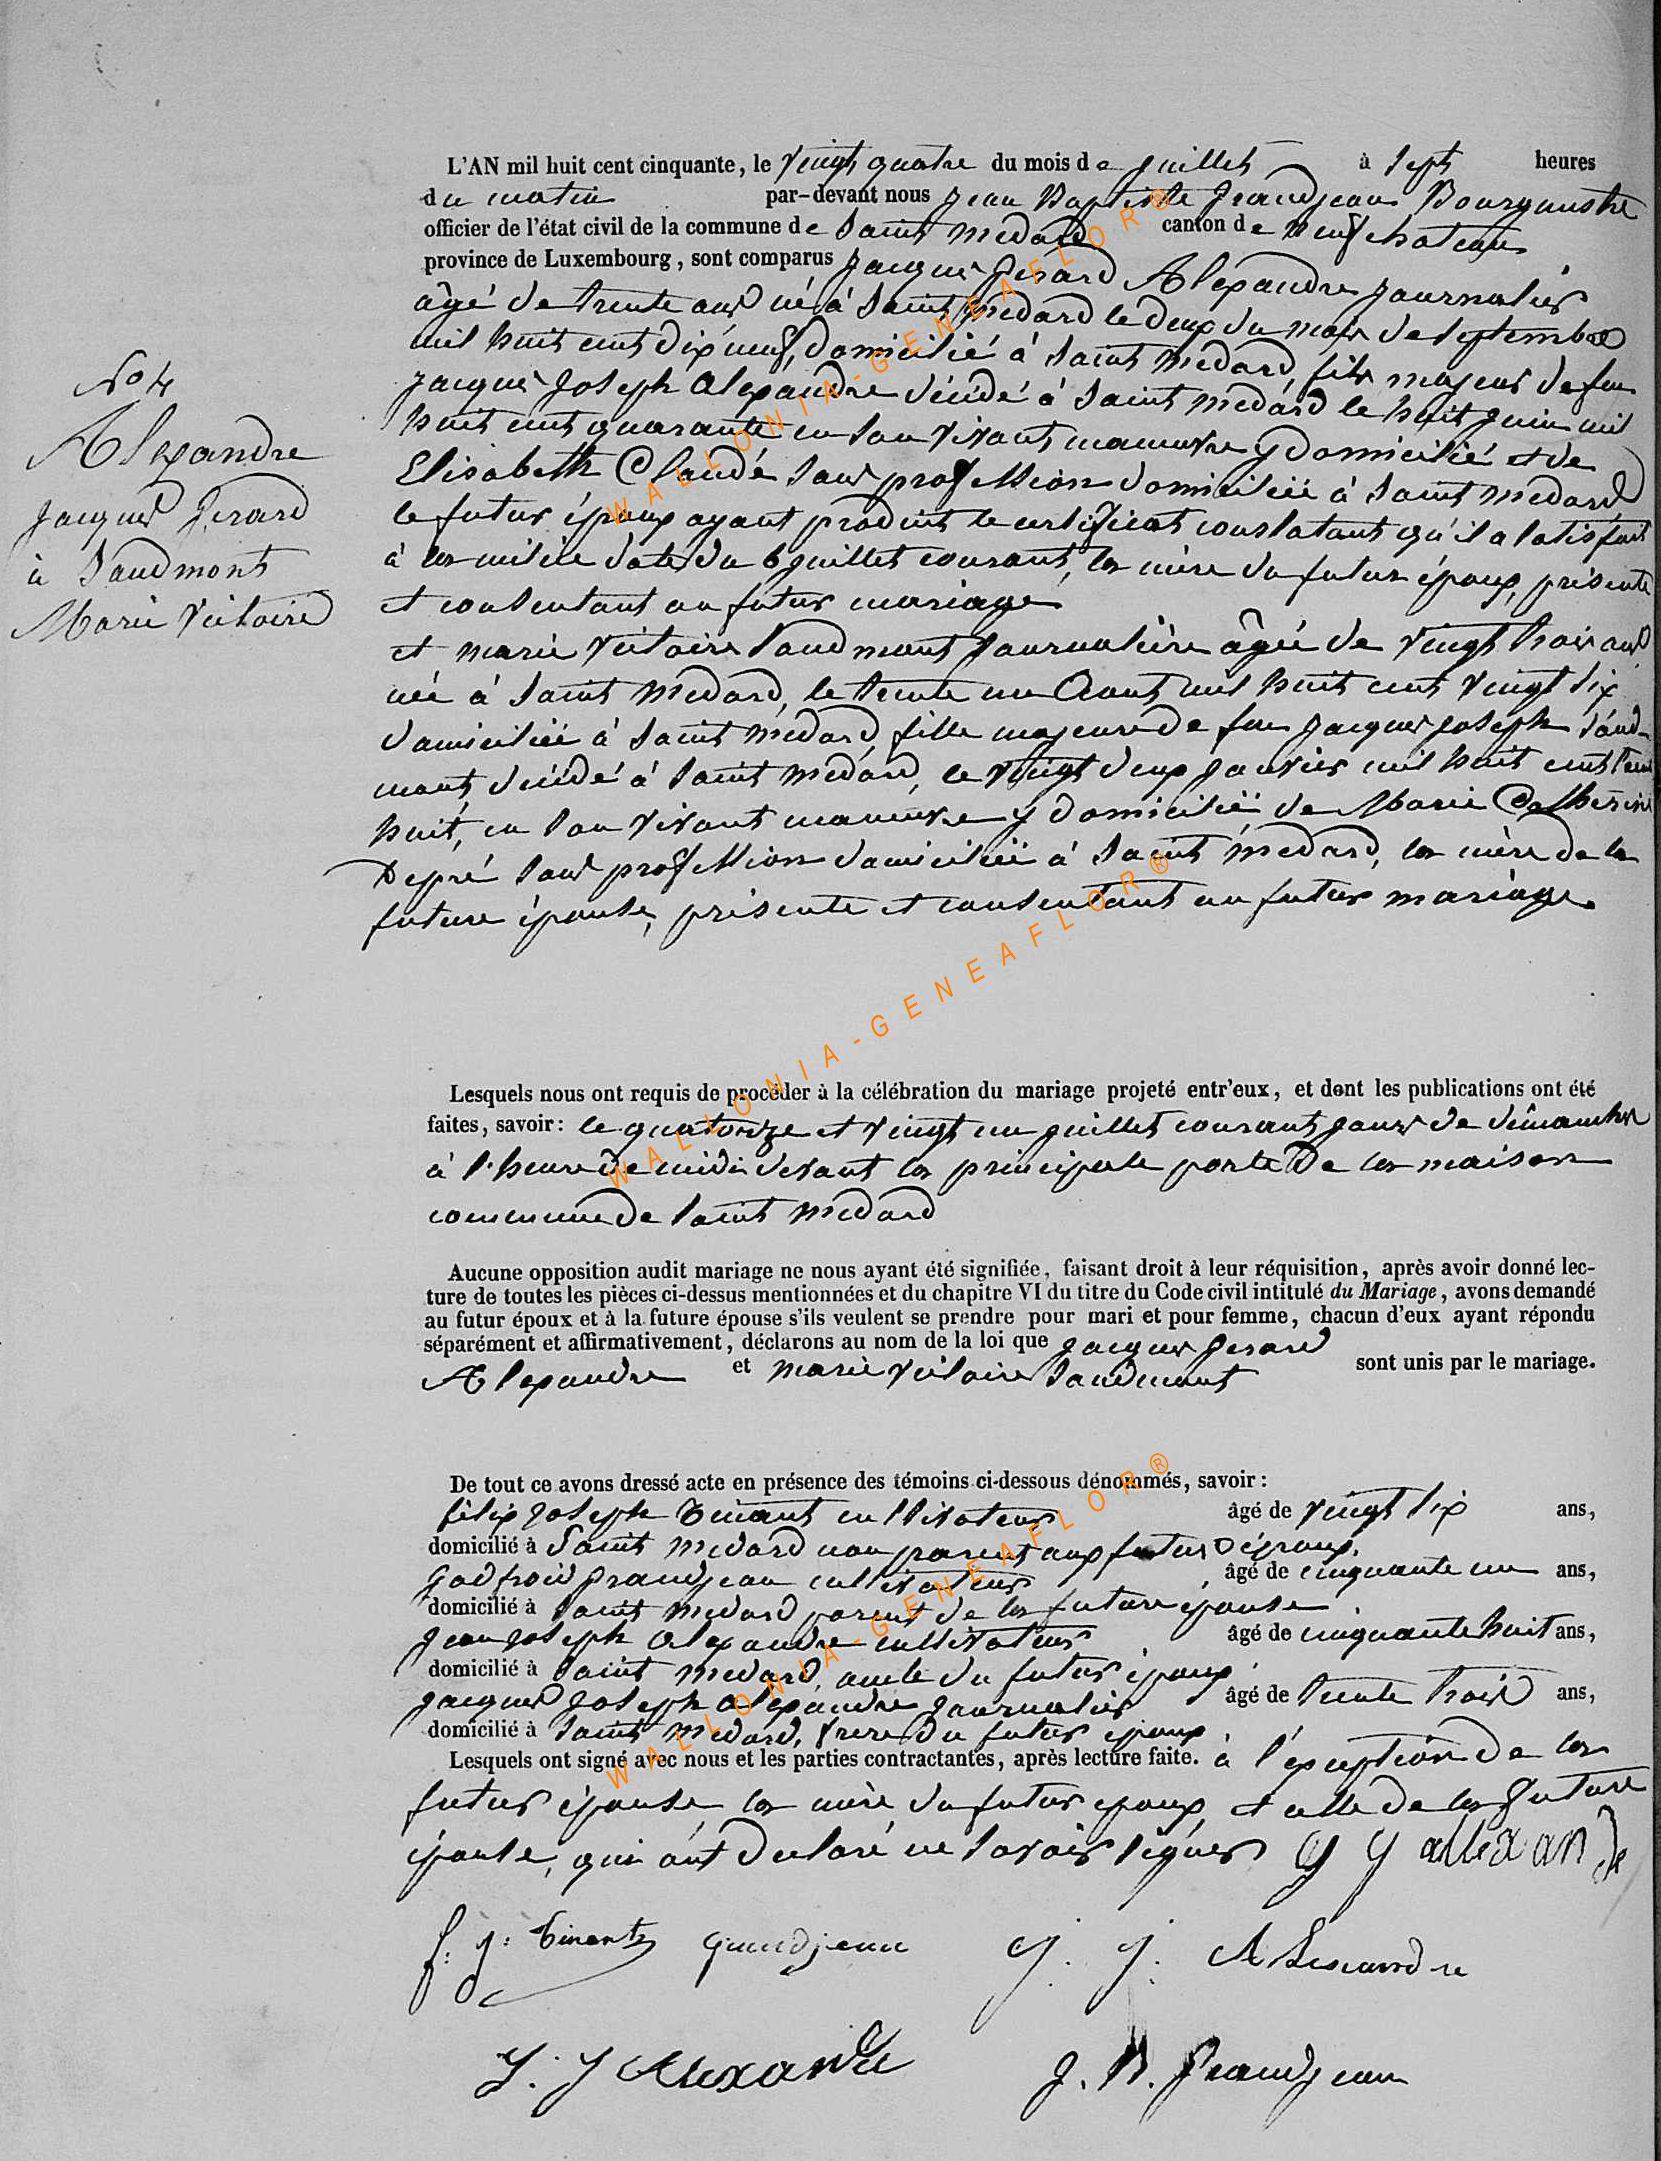 No 4
Alexandre
Jacques Gerard
à Saudmont
Marie Victoire
L'AN mil huit cent cinquante, le vingt quatre du mois de juillet à sept heures
du matin par-devant nous Jean Baptiste Grandjean Bourgmestre
officier de l'état civil de la commune de Saint Medard canton de Neufchateau
province de Luxembourg, sont comparus Jacques Gerard Alexandre journalier
âgé de trente ans né à Saint Medard le deux du mois de septembre
mil huit cent dix neuf, domicilié à Saint Medard, fils majeur de feu
Jacques Joseph Alexandre décédé à Saint Medard le huit juin mil
huit cent quarante en son vivant manœuvre y domicilié et de
Elisabeth Claude sans profession domiciliée à Saint Medard,
le futur époux ayant produit le certificat constatant qu'il a satisfait
à la milice daté du 6 juillet courant, la mère du futur époux, présente
et consentant au futur mariage
et marie Victoire Saudmont journalière âgée de vingt trois ans
née à Saint Medard, le trente un Aout mil huit cent vingt six
domiciliée à Saint Medard, fille majeure de feu Jacques Joseph Saud-
mont, décédé à Saint Medard, le vingt deux janvier mil huit cent trente
huit, en son vivant manœuvre y domicilié de Marie Catherine
Depré sans profession domiciliée à Saint Medard, la mère de la
future épouse, présente et consentant au futur mariage.
Lesquels nous ont requis de procéder à la célébration du mariage projeté entr'eux, et dont les publications ont été
faites, savoir: le quatorze et vingt un juillet courant jours de dimanches
à l'heure de midi devant la principale porte de la maison
commune de Saint Medard
Aucune opposition audit mariage ne nous ayant été signifiée, faisant droit à leur réquisition, après avoir donné lec-
ture de toutes les pièces ci-dessus mentionnées et du chapitre VI du titre du Code civil intitulé du Mariage, avons demandé
au futur époux et à la future épouse s'ils veulent se prendre pour mari et pour femme, chacun d'eux ayant répondu
séparément et affirmativement, déclarons au nom de la loi que Jacques Gerard
Alexandre et Marie Victoire Saudmont sont unis par le mariage.
De tout ce avons dressé acte en présence des témoins ci-dessous dénommés, savoir:
félix Joseph Tinant cultivateur âgé de vingt six ans,
domicilié à Saint Medard non parent aux futurs époux.
Godfroid Grandjean cultivateur âgé de cinquante un ans,
domicilié à Saint Medard parent de la future épouse
Jean Joseph Alexandre cultivateur âgé de cinquante huit ans,
domicilié à Saint Medard, oncle du futur époux
Jacques Joseph Alexandre journalier âgé de trente trois ans,
domicilié à Saint Medard, frere du futur époux
Lesquels ont signé avec nous et les parties contractantes, après lecture faite. à l'exception de la
futur épouse, la mère du futur époux et celle de la future
épouse, qui ont declaré ne savoir signer G J allexandre
f: J: Tinant Grandjean J. J. Alexandre
J. J Alexandre J. B. Grandjean
WALLONIA-GENEAFLOR®
WALLONIA-GENEAFLOR®
WALLONIA-GENEAFLOR®